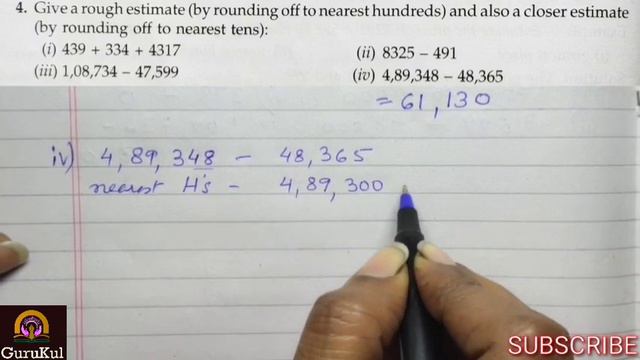 4. Give a rough estimate (by rounding off to nearest hundreds) and also a closer estimate
(by rounding off to nearest tens):
(i) 439 + 334 + 4317 (ii) 8325 – 491
(iii) 1,08,734 – 47,599 (iv) 4,89,348 – 48,365
= 61,130
iv) 4,89,348 – 48,365
nearest H's – 4,89,300
GuruKul
SUBSCRIBE